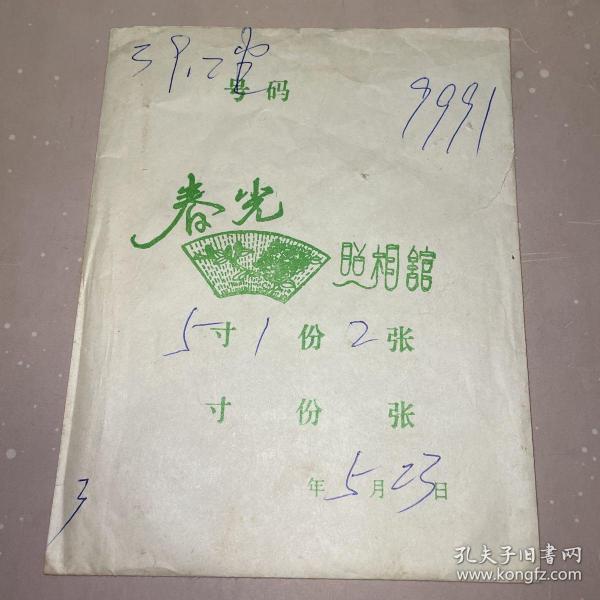 号码
9991
春光
照相館
5寸1份2张
寸 份 张
年5月23日
3
孔夫子旧书网
www.kongfz.com